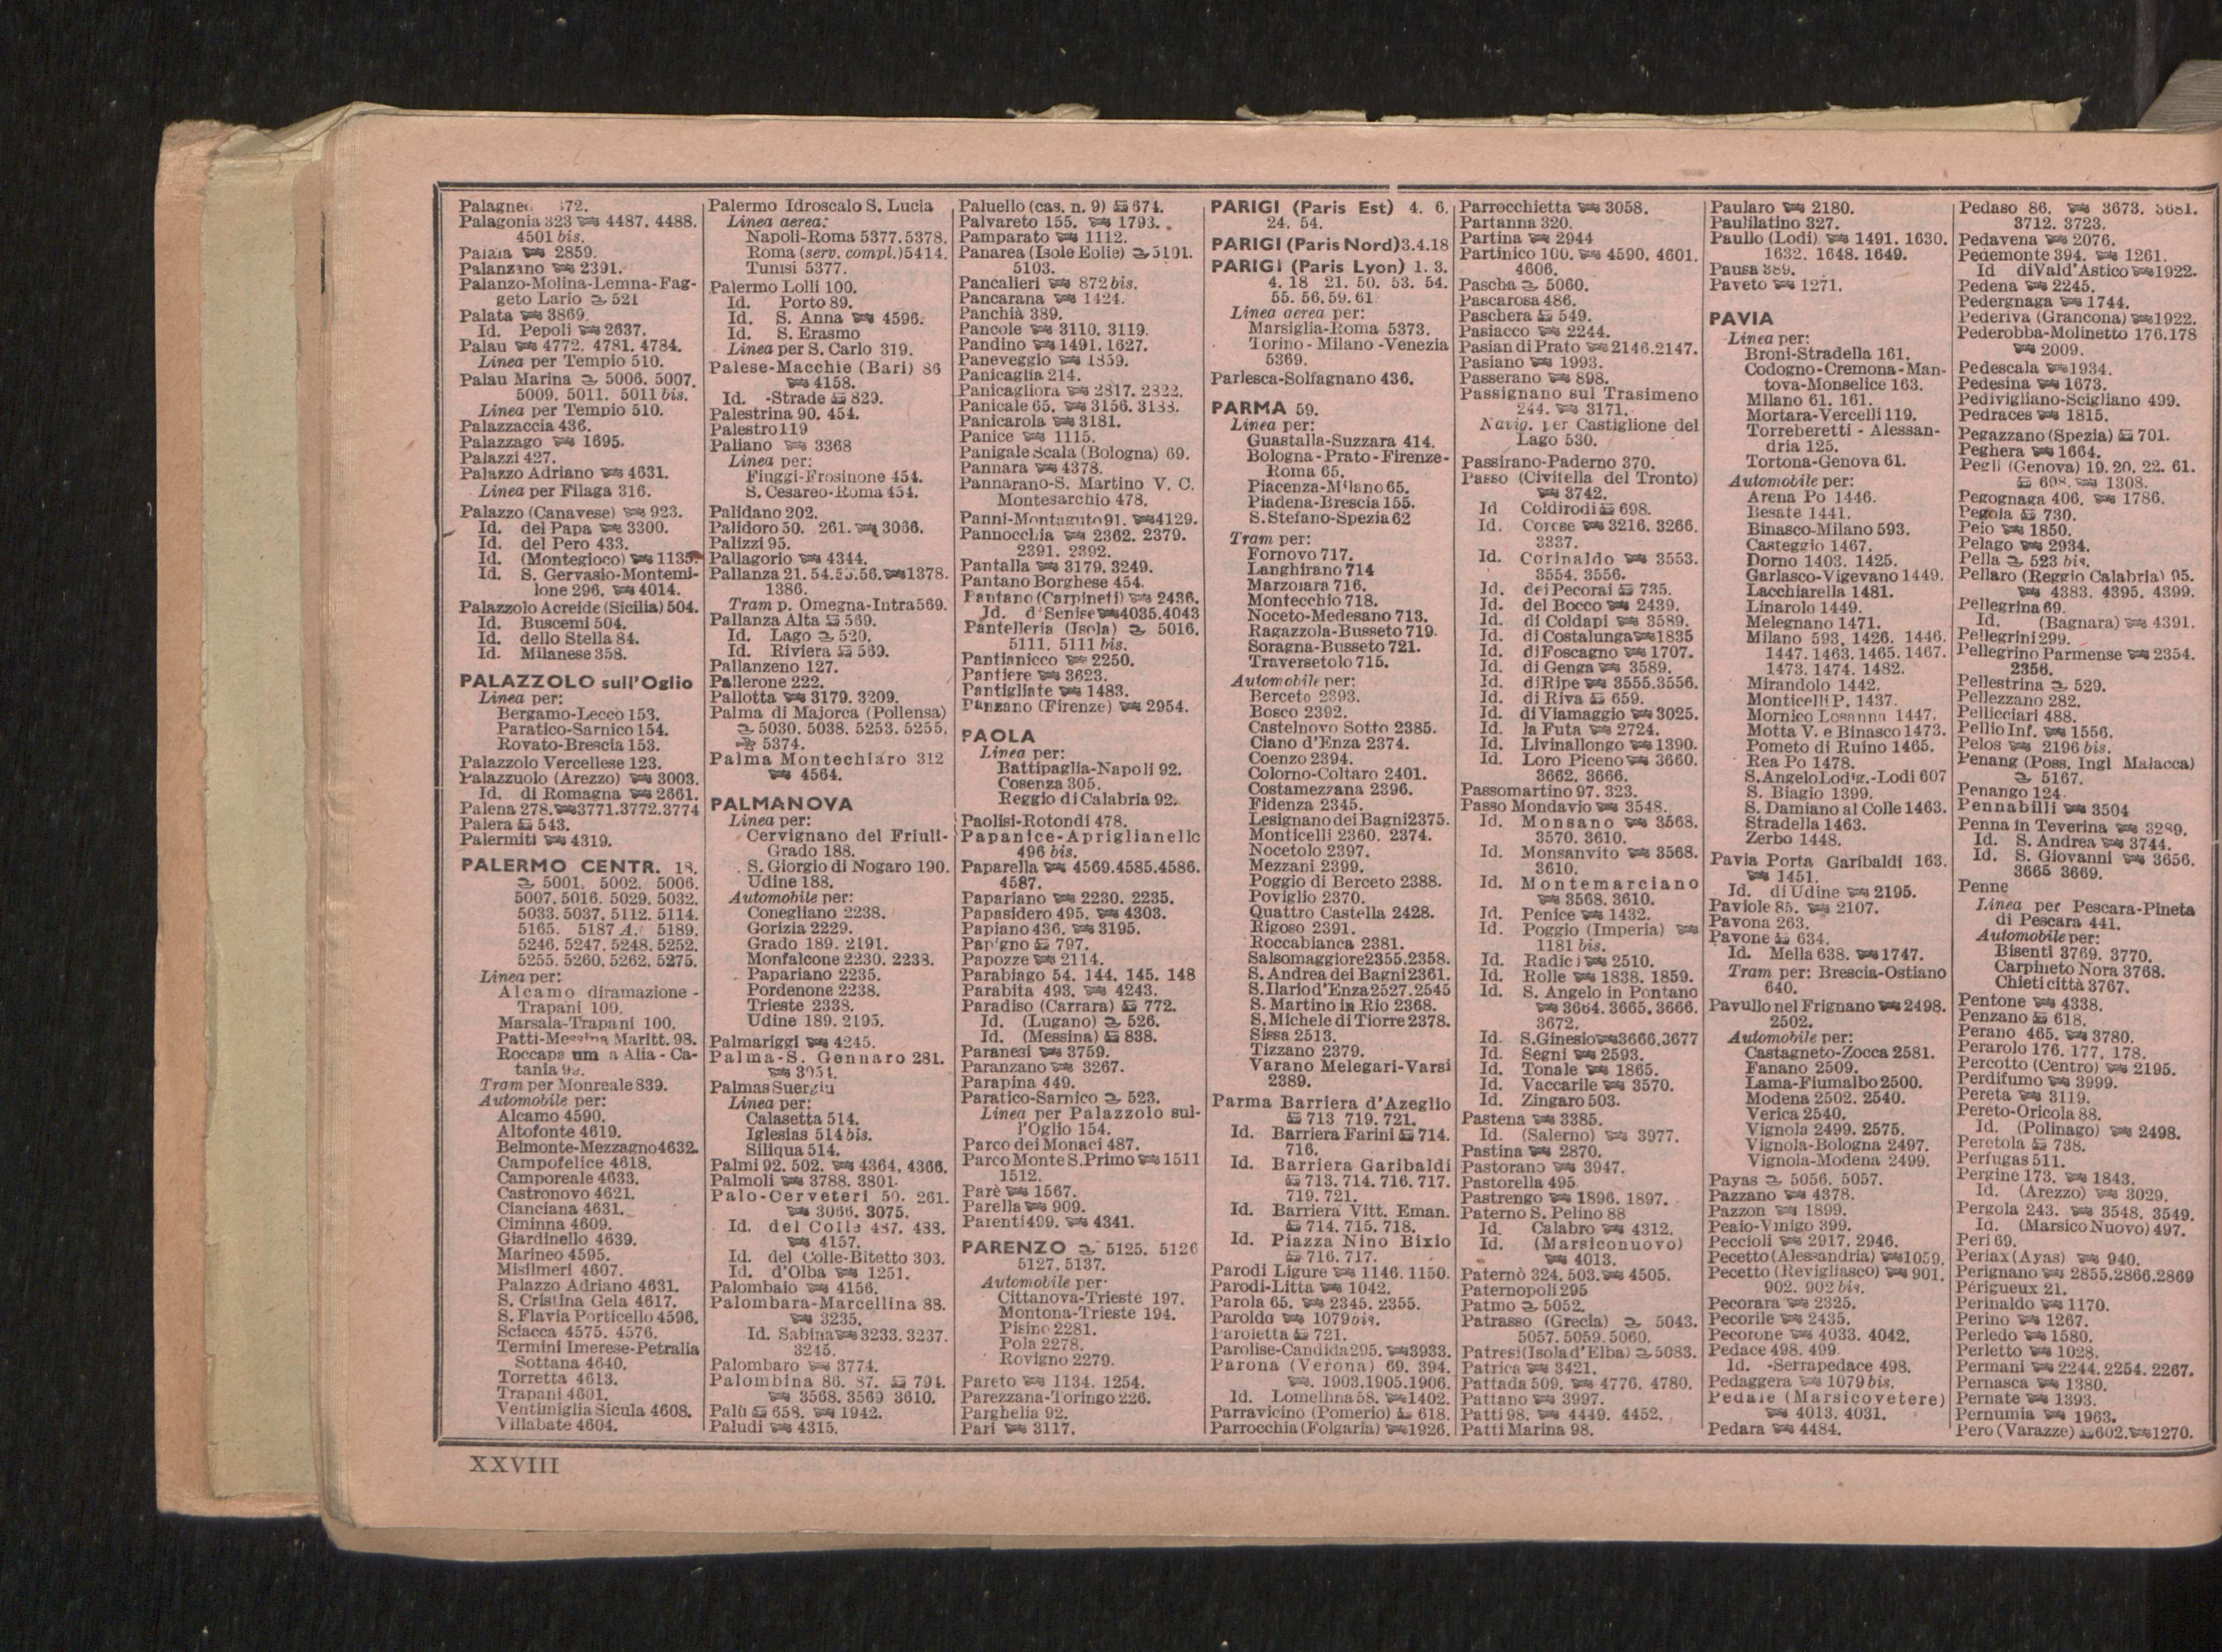 Palagne 372.
Palagonia 323 4487. 4488.
4501 bis.
Palaia 2859.
Palanzano 2391.
Palanzo-Molina-Lemna-Fag-
geto Lario 521
Palata 3869.
Id. Pepoli 2637.
Palau 4772. 4781. 4784.
Linea per Tempio 510.
Palau Marina 5006. 5007.
5009. 5011. 5011 bis.
Linea per Tempio 510.
Palazzaccia 436.
Palazzago 1695.
Palazzi 427.
Palazzo Adriano 4631.
Linea per Filaga 316.
Palazzo (Canavese) 923.
Id. del Papa 3300.
Id. del Pero 433.
Id. (Montegioco) 1135.
Id. S. Gervasio-Montemi-
lone 296. 4014.
Palazzolo Acreide (Sicilia) 504.
Id. Buscemi 504.
Id. dello Stella 84.
Id. Milanese 358.
PALAZZOLO sull'Oglio
Linea per:
Bergamo-Lecco 153.
Paratico-Sarnico 154.
Rovato-Brescia 153.
Palazzolo Vercellese 123.
Palazzuolo (Arezzo) 3003.
Id. di Romagna 2661.
Palena 278. 3771.3772.3774
Palera 543.
Palermiti 4319.
PALERMO CENTR. 18.
5001. 5002. 5006.
5007. 5016. 5029. 5032.
5033. 5037. 5112. 5114.
5165. 5187 A. 5189.
5246. 5247. 5248. 5252.
5255. 5260. 5262. 5275.
Linea per:
Alcamo diramazione -
Trapani 100.
Marsala-Trapani 100.
Patti-Messina Maritt. 98.
Roccapa um a Alia - Ca-
tania 98.
Tram per Monreale 839.
Automobile per:
Alcamo 4590.
Altofonte 4619.
Belmonte-Mezzagno 4632.
Campofelice 4618.
Camporeale 4633.
Castronovo 4621.
Cianciana 4631.
Ciminna 4609.
Giardinello 4639.
Marineo 4595.
Misilmeri 4607.
Palazzo Adriano 4631.
S. Cristina Gela 4617.
S. Flavia Porticello 4596.
Sciacca 4575. 4576.
Termini Imerese-Petralia
Sottana 4640.
Torretta 4613.
Trapani 4601.
Ventimiglia Sicula 4608.
Villabate 4604.
Palermo Idroscalo S. Lucia
Linea aerea:
Napoli-Roma 5377. 5378.
Roma (serv. compl.) 5414.
Tunisi 5377.
Palermo Lolli 100.
Id. Porto 89.
Id. S. Anna 4596.
Id. S. Erasmo
Linea per S. Carlo 319.
Palese-Macchie (Bari) 86
4158.
Id. -Strade 829.
Palestrina 90. 454.
Palestro 119
Paliano 3368
Linea per:
Fiuggi-Frosinone 454.
S. Cesareo-Roma 454.
Palidano 202.
Palidoro 50. 261. 3066.
Palizzi 95.
Pallagorio 4344.
Pallanza 21. 54. 55. 56. 1378.
1386.
Tram p. Omegna-Intra 569.
Pallanza Alta 569.
Id. Lago 520.
Id. Riviera 569.
Pallanzeno 127.
Pallerone 222.
Pallotta 3179. 3209.
Palma di Majorca (Pollensa)
5030. 5038. 5253. 5255.
5374.
Palma Montechiaro 312
4564.
PALMANOVA
Linea per:
Cervignano del Friuli-
Grado 188.
S. Giorgio di Nogaro 190.
Udine 188.
Automobile per:
Conegliano 2238.
Gorizia 2229.
Grado 189. 2191.
Monfalcone 2230. 2238.
Papariano 2235.
Pordenone 2238.
Trieste 2338.
Udine 189. 2195.
Palmariggi 4245.
Palma-S. Gennaro 281.
3951.
Palmas Suergiu
Linea per:
Calasetta 514.
Iglesias 514 bis.
Siliqua 514.
Palmi 92. 502. 4364. 4366.
Palmoli 3788. 3801.
Palo-Cerveteri 50. 261.
3066. 3075.
Id. del Colle 487. 488.
4157.
Id. del Colle-Bitetto 303.
Id. d'Olba 1251.
Palombaio 4156.
Palombara-Marcellina 88.
3235.
Id. Sabina 3233. 3237.
3245.
Palombaro 3774.
Palombina 86. 87. 794.
3568. 3569 3610.
Palù 658. 1942.
Paludi 4315.
Paluello (cas. n. 9) 674.
Palvareto 155. 1793.
Pamparato 1112.
Panarea (Isole Eolie) 5101.
5103.
Pancalieri 872 bis.
Pancarana 1424.
Panchià 389.
Pancole 3110. 3119.
Pandino 1491. 1627.
Paneveggio 1859.
Panicaglia 214.
Panicagliora 2817. 2822.
Panicale 65. 3156. 3188.
Panicarola 3181.
Panice 1115.
Panigale Scala (Bologna) 69.
Pannara 4378.
Pannarano-S. Martino V. C.
Montesarchio 478.
Panni-Montaguto 91. 4129.
Pannocchia 2362. 2379.
2391. 2392.
Pantalla 3179. 3249.
Pantano Borghese 454.
Pantano (Carpineti) 2436.
Id. d'Senise 4035.4043
Pantelleria (Isola) 5016.
5111. 5111 bis.
Pantianicco 2250.
Pantiere 3623.
Pantigliate 1483.
Panzano (Firenze) 2954.
PAOLA
Linea per:
Battipaglia-Napoli 92.
Cosenza 305.
Reggio di Calabria 92.
Paolisi-Rotondi 478.
Papanice-Apriglianello
496 bis.
Paparella 4569.4585.4586.
4587.
Papariano 2230. 2235.
Papasidero 495. 4303.
Papiano 436. 3195.
Papigno 797.
Papozze 2114.
Parabiago 54. 144. 145. 148
Parabita 493. 4243.
Paradiso (Carrara) 772.
Id. (Lugano) 526.
Id. (Messina) 838.
Paranesi 3759.
Paranzano 3267.
Parapina 449.
Paratico-Sarnico 523.
Linea per Palazzolo sul-
l'Oglio 154.
Parco dei Monaci 487.
Parco Monte S. Primo 1511
1512.
Parè 1567.
Parella 909.
Parenti 499. 4341.
PARENZO 5125. 5126
5127. 5137.
Automobile per:
Cittanova-Trieste 197.
Montona-Trieste 194.
Pisino 2281.
Pola 2278.
Rovigno 2279.
Pareto 1134. 1254.
Parezzana-Toringo 226.
Parghelia 92.
Pari 3117.
PARIGI (Paris Est) 4. 6.
24. 54.
PARIGI (Paris Nord) 3.4.18
PARIGI (Paris Lyon) 1. 3.
4. 18 21. 50. 53. 54.
55. 56. 59. 61
Linea aerea per:
Marsiglia-Roma 5373.
Torino - Milano -Venezia
5369.
Parlesca-Solfagnano 436.
PARMA 59.
Linea per:
Guastalla-Suzzara 414.
Bologna - Prato - Firenze-
Roma 65.
Piacenza-Milano 65.
Piadena-Brescia 155.
S. Stefano-Spezia 62
Tram per:
Fornovo 717.
Langhirano 714
Marzolara 716.
Montecchio 718.
Noceto-Medesano 713.
Ragazzola-Busseto 719.
Soragna-Busseto 721.
Traversetolo 715.
Automobile per:
Berceto 2393.
Bosco 2392.
Castelnovo Sotto 2385.
Ciano d'Enza 2374.
Coenzo 2394.
Colorno-Coltaro 2401.
Costamezzana 2396.
Fidenza 2345.
Lesignano dei Bagni 2375.
Monticelli 2360. 2374.
Nocetolo 2397.
Mezzani 2399.
Poggio di Berceto 2388.
Poviglio 2370.
Quattro Castella 2428.
Rigoso 2391.
Roccabianca 2381.
Salsomaggiore 2355.2358.
S. Andrea dei Bagni 2361.
S. Ilario d'Enza 2527.2545
S. Martino in Rio 2368.
S. Michele di Tiorre 2378.
Sissa 2513.
Tizzano 2379.
Varano Melegari-Varsi
2389.
Parma Barriera d'Azeglio
713 719. 721.
Id. Barriera Farini 714.
716.
Id. Barriera Garibaldi
713. 714. 716. 717.
719. 721.
Id. Barriera Vitt. Eman.
714. 715. 718.
Id. Piazza Nino Bixio
716. 717.
Parodi Ligure 1146. 1150.
Parodi-Litta 1042.
Parola 65. 2345. 2355.
Paroldo 1079 bis.
Paroletta 721.
Parolise-Candida 295. 3933.
Parona (Verona) 69. 394.
1903.1905.1906.
Id. Lomellina 58. 1402.
Parravicino (Pomerio) 618.
Parrocchia (Folgaria) 1926.
Parrocchietta 3058.
Partanna 320.
Partina 2944
Partinico 100. 4590. 4601.
4606.
Pascha 5060.
Pascarosa 486.
Paschera 549.
Pasiacco 2244.
Pasian di Prato 2146.2147.
Pasiano 1993.
Passerano 898.
Passignano sul Trasimeno
244. 3171.
Navig. per Castiglione del
Lago 530.
Passirano-Paderno 370.
Passo (Civitella del Tronto)
3742.
Id Coldirodi 698.
Id. Corese 3216. 3266.
3337.
Id. Corinaldo 3553.
3554. 3556.
Id. dei Pecorai 735.
Id. del Bocco 2439.
Id. di Coldapi 3589.
Id. di Costalunga 1835
Id. di Foscagno 1707.
Id. di Genga 3589.
Id. di Ripe 3555.3556.
Id. di Riva 659.
Id. di Viamaggio 3025.
Id. la Futa 2724.
Id. Livinallongo 1390.
Id. Loro Piceno 3660.
3662. 3666.
Passomartino 97. 323.
Passo Mondavio 3548.
Id. Monsano 3568.
3570. 3610.
Id. Monsanvito 3568.
3610.
Id. Montemarciano
3568. 3610.
Id. Penice 1432.
Id. Poggio (Imperia)
1181 bis.
Id. Radici 2510.
Id. Rolle 1838. 1859.
Id. S. Angelo in Pontano
3664. 3665. 3666.
3672.
Id. S. Ginesio 3666.3677
Id. Segni 2593.
Id. Tonale 1865.
Id. Vaccarile 3570.
Id. Zingaro 503.
Pastena 3385.
Id. (Salerno) 3977.
Pastina 2870.
Pastorano 3947.
Pastorella 495.
Pastrengo 1896. 1897.
Paterno S. Pelino 88
Id Calabro 4312.
Id. (Marsiconuovo)
4013.
Paternò 324. 503. 4505.
Paternopoli 295
Patmo 5052.
Patrasso (Grecia) 5043.
5057. 5059. 5060.
Patresi (Isola d'Elba) 5083.
Patrica 3421.
Pattada 509. 4776. 4780.
Pattano 3997.
Patti 98. 4449. 4452.
Patti Marina 98.
Paularo 2180.
Paulilatino 327.
Paullo (Lodi) 1491. 1630.
1632. 1648. 1649.
Pausa 389.
Paveto 1271.
PAVIA
Linea per:
Broni-Stradella 161.
Codogno - Cremona - Man-
tova-Monselice 163.
Milano 61. 161.
Mortara-Vercelli 119.
Torreberetti - Alessan-
dria 125.
Tortona-Genova 61.
Automobile per:
Arena Po 1446.
Besate 1441.
Binasco-Milano 593.
Casteggio 1467.
Dorno 1403. 1425.
Garlasco-Vigevano 1449.
Lacchiarella 1481.
Linarolo 1449.
Melegnano 1471.
Milano 593. 1426. 1446.
1447. 1463. 1465. 1467.
1473. 1474. 1482.
Mirandolo 1442.
Monticelli P. 1437.
Mornico Losanna 1447.
Motta V. e Binasco 1473.
Pometo di Ruino 1465.
Rea Po 1478.
S. Angelo Lodig.-Lodi 607
S. Biagio 1399.
S. Damiano al Colle 1463.
Stradella 1463.
Zerbo 1448.
Pavia Porta Garibaldi 163.
1451.
Id. di Udine 2195.
Paviole 85. 2107.
Pavona 263.
Pavone 634.
Id. Mella 638. 1747.
Tram per: Brescia-Ostiano
640.
Pavullo nel Frignano 2498.
2502.
Automobile per:
Castagneto-Zocca 2581.
Fanano 2509.
Lama-Fiumalbo 2500.
Modena 2502. 2540.
Verica 2540.
Vignola 2499. 2575.
Vignola-Bologna 2497.
Vignola-Modena 2499.
Payas 5056. 5057.
Pazzano 4378.
Pazzon 1899.
Peaio-Vinigo 399.
Peccioli 2917. 2946.
Pecetto (Alessandria) 1059.
Pecetto (Revigliasco) 901.
902. 902 bis.
Pecorara 2325.
Pecorile 2435.
Pecorone 4033. 4042.
Pedace 498. 499.
Id. -Serrapedace 498.
Pedaggera 1079 bis.
Pedale (Marsicovetere)
4013. 4031.
Pedara 4484.
Pedaso 86. 3673. 3681.
3712. 3723.
Pedavena 2076.
Pedemonte 394. 1261.
Id di Vald'Astico 1922.
Pedena 2245.
Pedergnaga 1744.
Pederiva (Grancona) 1922.
Pederobba-Molinetto 176.178
2009.
Pedescala 1934.
Pedesina 1673.
Pedivigliano-Scigliano 499.
Pedraces 1815.
Pegazzano (Spezia) 701.
Peghera 1664.
Pegli (Genova) 19. 20. 22. 61.
698. 1308.
Pegognaga 406. 1786.
Pegola 730.
Peio 1850.
Pelago 2934.
Pella 523 bis.
Pellaro (Reggio Calabria) 95.
4383. 4395. 4399.
Pellegrina 69.
Id. (Bagnara) 4391.
Pellegrini 299.
Pellegrino Parmense 2354.
2356.
Pellestrina 529.
Pellezzano 282.
Pellicciari 488.
Pellio Inf. 1556.
Pelos 2196 bis.
Penang (Poss. Ingl Malacca)
5167.
Penango 124.
Pennabilli 3504
Penna in Teverina 3289.
Id. S. Andrea 3744.
Id. S. Giovanni 3656.
3665 3669.
Penne
Linea per Pescara-Pineta
di Pescara 441.
Automobile per:
Bisenti 3769. 3770.
Carpineto Nora 3768.
Chieti città 3767.
Pentone 4338.
Penzano 618.
Perano 465. 3780.
Perarolo 176. 177. 178.
Percotto (Centro) 2195.
Perdifumo 3999.
Pereta 3119.
Pereto-Oricola 88.
Id. (Polinago) 2498.
Peretola 738.
Perfugas 511.
Pergine 173. 1843.
Id. (Arezzo) 3029.
Pergola 243. 3548. 3549.
Id. (Marsico Nuovo) 497.
Peri 69.
Periax (Ayas) 940.
Perignano 2855.2866.2869
Périgueux 21.
Perinaldo 1170.
Perino 1267.
Perledo 1580.
Perletto 1028.
Permani 2244. 2254. 2267.
Pernasca 1380.
Pernate 1393.
Pernumia 1963.
Pero (Varazze) 602. 1270.
XXVIII